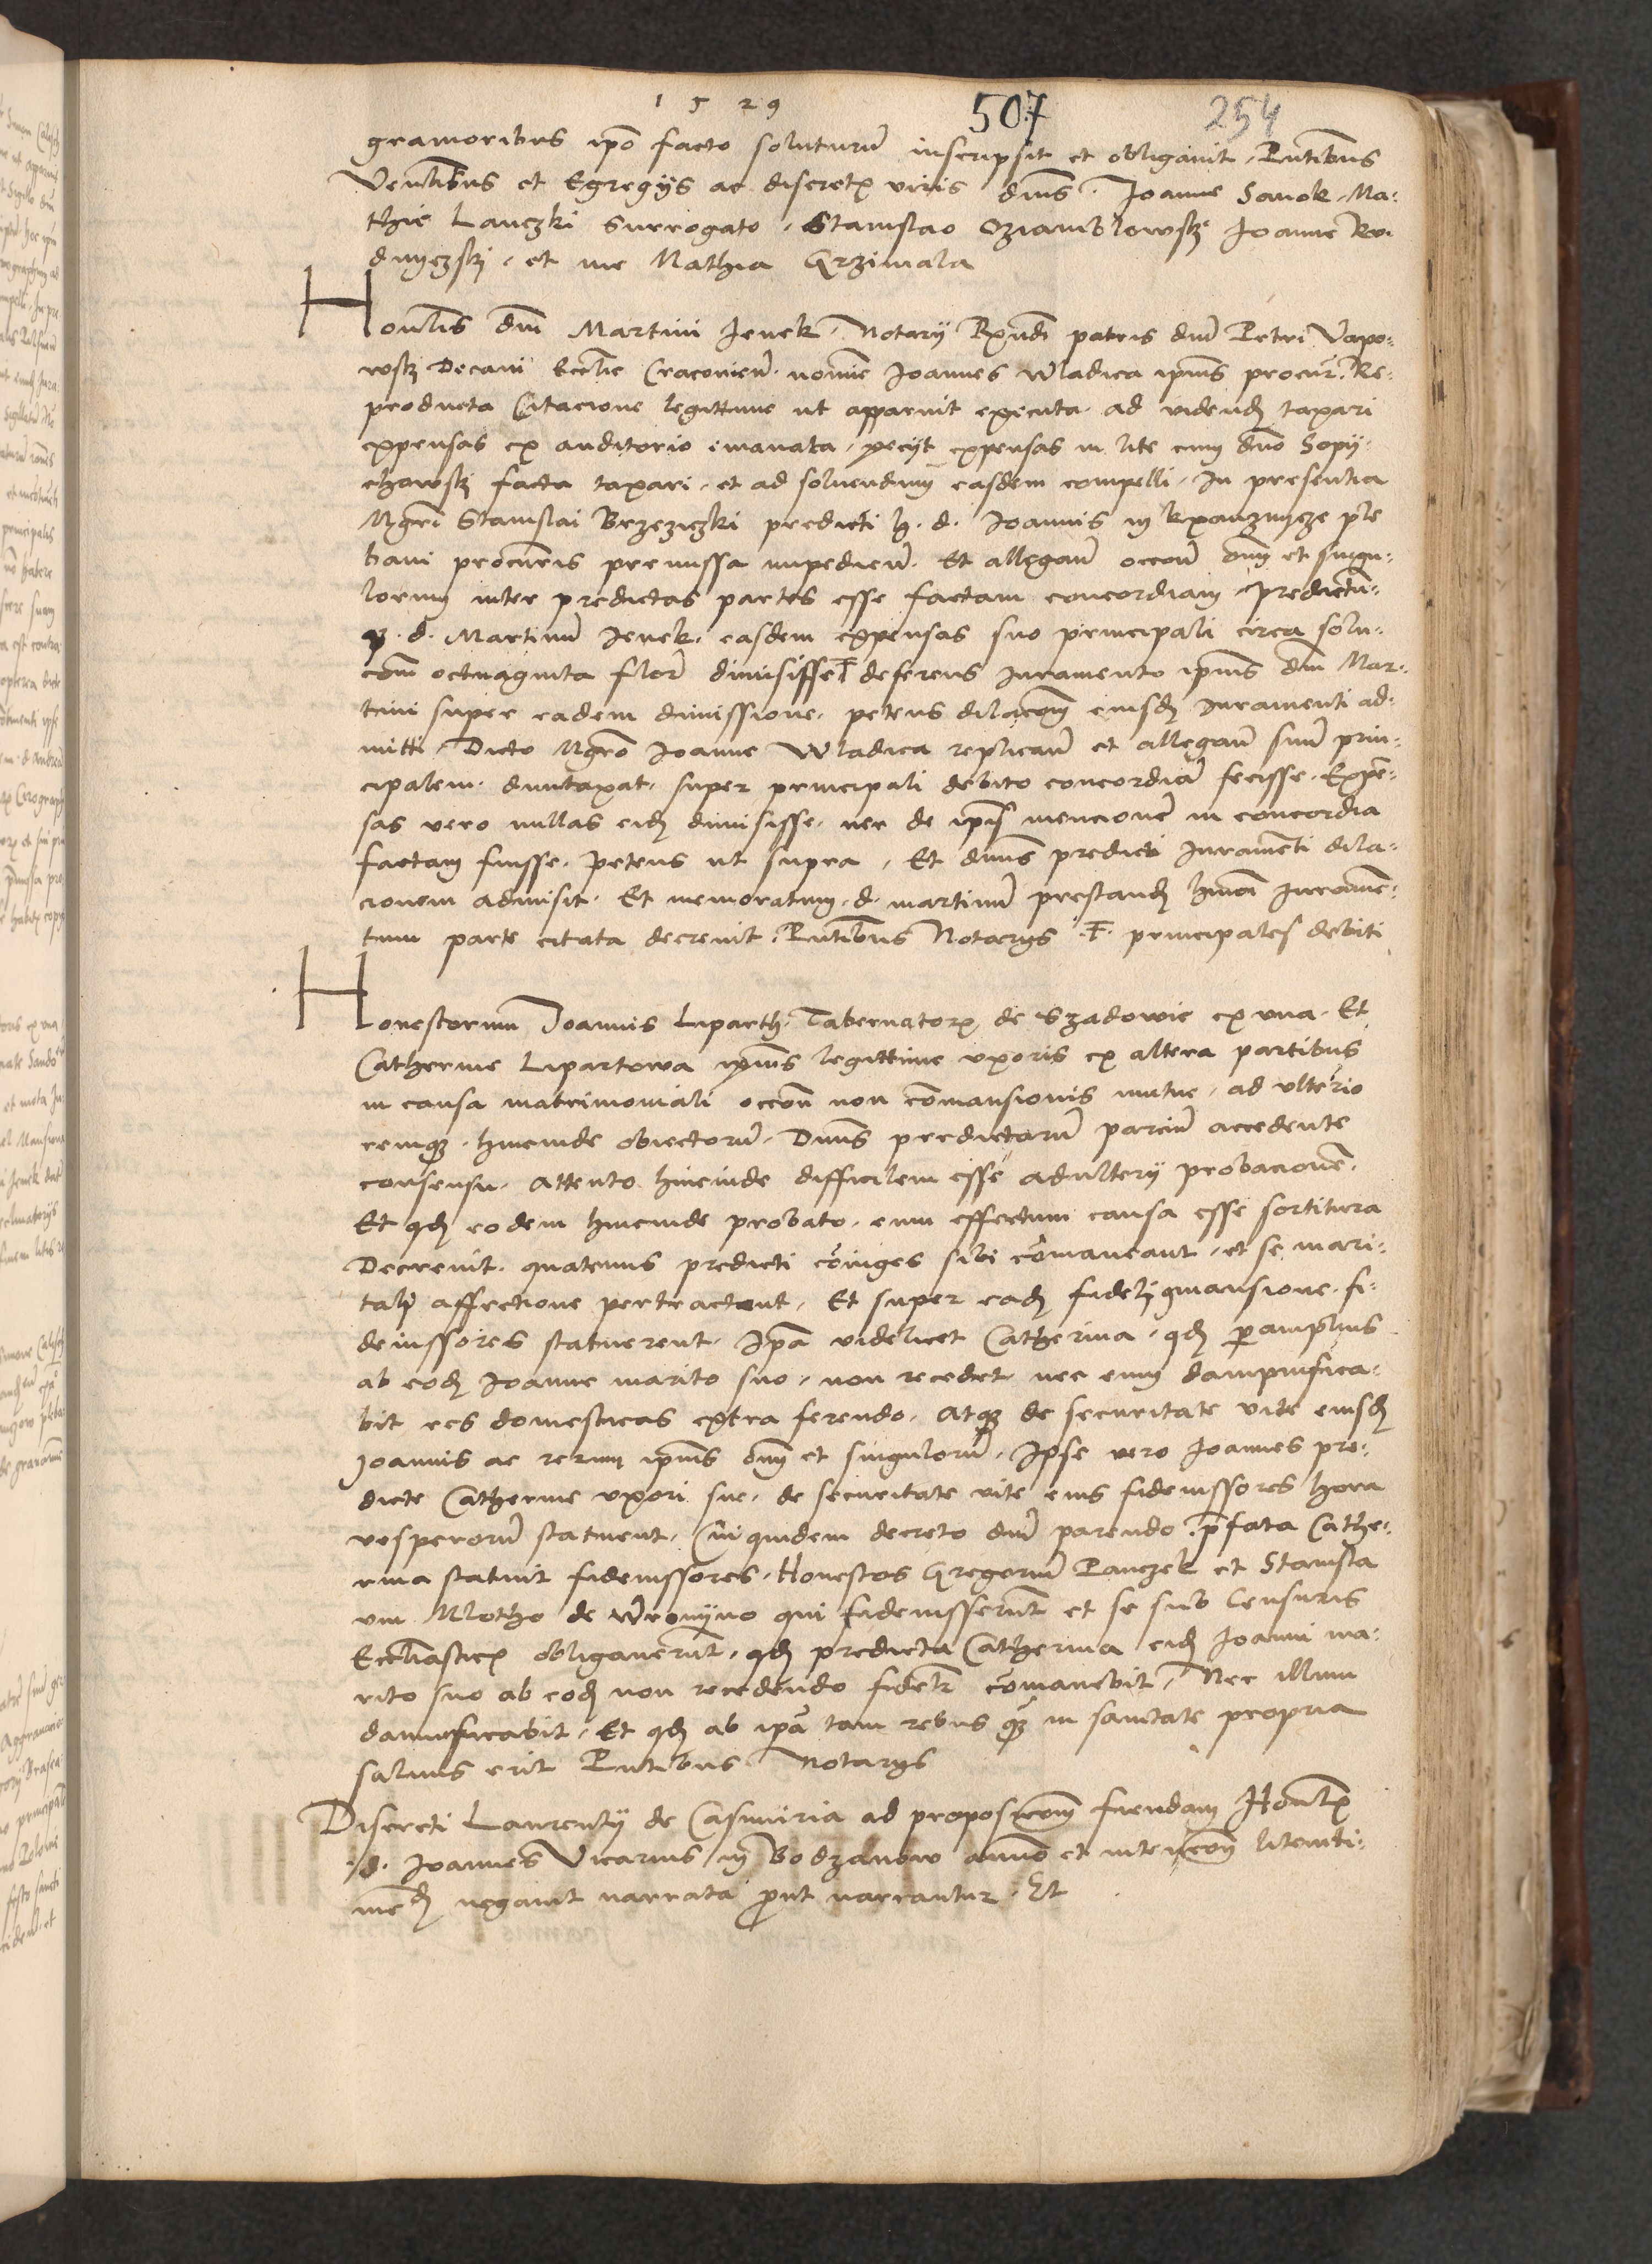 1529 507 254
gramoribus ipo facto soluturu inscripsit et obligauit, Pntibus
Venlibus et Egregijs ac discretx viris dnis. Joanne Sanok, Ma-
thie Lanczki surrogato, Stanislao Dziambowsky Joanne
et me Mathia Grzimala
Honlis dni Martini Jenek, Notarij Rxndi patris dni Petri Vapo-
wskj Decani Ecclie Cracovien. nomine Joannes Wladica ipius procur. Re-
producta Citacione legittime ut apparuit executa. ad videndz taxari
expensas ex auditorio emanata, pecijt expensas in lite cum dno Sopij-
chowskj facta taxari, et ad soluendum easdem compelli, In presentia
Mgri Stanislai Brzeziczki predicti h. d. Joannis in ple
bani procuris premissa impedien. Et allegan occone oim et singu-
lorum inter predictas partes esse factam concordiam predictu-
qz. d. Martinu Jenek. easdem expensas suo principali circa solu-
com octuaginta flor dimisisse deferens Juramento ipius dni Mar-
tini super eadem dimissione, petens dilacom eiusdz Juramenti ad-
mitti, Dicto Mgro Joanne Wladica replican et allegan suu prin-
cipalem. duntaxat. super principali debito concordia fecisse. Expe-
sas vero nullas eidz dimisisse, nec de ipis mencione in concordia
factam fuisse. Petens ut supra, Et dnus predicti Juramenti dila-
cionem admisit. Et memoratum. d. martinu prestandz hmoi Jurame-
tum parte citata decreuit. Pntibus Notarijs .F. principales debiti
Honestorum Joannis Liparth. Tabernatorx de Szadowie ex vna. Et
Catherine Lipartowa ipius legittime vxoris ex altera partibus
in causa matrimoniali occone non comansionis mutue, ad ulterio
remqz. hincinde obiectoru. Dnus predictaru parciu accedente
consensu. attento hincinde difficilem esse adulterij probacione.
Et qdz eodem hincinde probato. eum effectum causa esse sortitura
Decreuit. quatenus predicti coiuges sibi comaneant, et se mari-
tali affectione pertractent, Et super eadz fideli gmansione. fi-
deiussores statuerent. Ipa videlicet Catherina, qdz p amplius
ab eodz Joanne marito suo, non recedet. nec eum dampnifica-
bit res domesticas extra ferendo. atqz de securitate vite eiusdz
Joannis ac rerum ipius oim et singuloru. Ipse vero Joannes pre-
dicte Catherine vxori sue. de securitate vite eius fideiussores hora
vesperoru statuent. Cui quidem decreto dni parendo pfata Cathe-
rina statuit fideiussores. Honestos Gregoriu Panczek et Stanisla
um Mlotho de Wrominyno qui fideiusserunt et se sub Censuris
Ecclesiasticx obligauerunt. qdz predicta Catherina eidz Joanni ma-
rito suo ab eodz non recedendo fidelr comanebit, Nec illum
damnificabit, Et qdz ab ipa tam rebus qz in sanitate propria
saluus erit Pntibus Notarijs
Discreti Laurentij de Casmiria ad proposicom fiendam Honlx
d. Joannes Vicarius in Bodzanow animo et intencom litemti-
nedz negauit narrata prout narrantur. Et